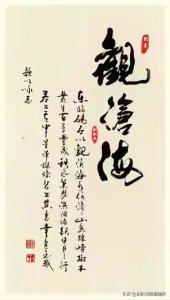 觀滄海
东临碣石以觀滄海水何澹澹山岛竦峙樹木
丛生百草豐茂秋風萧瑟洪波涌起日月之行
若出其中星漢燦爛若出其里幸甚至哉
歌以咏志
头条